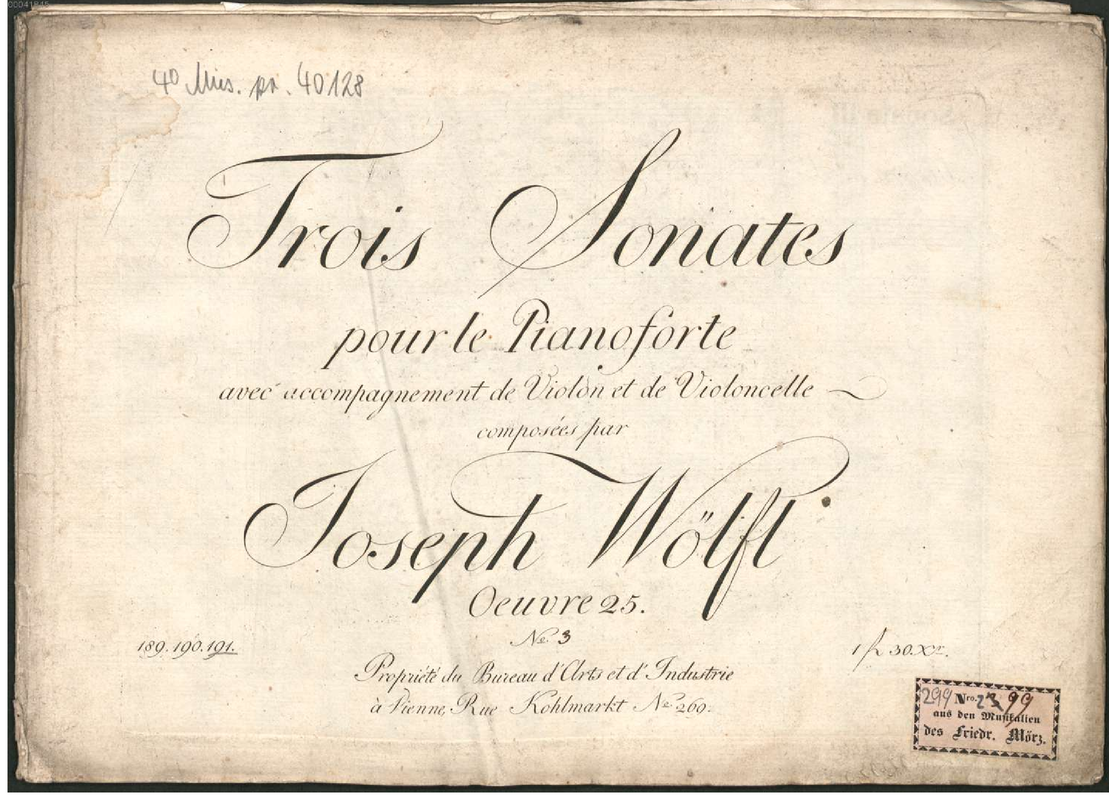 4° Mus. pr. 40128
Trois Sonates
pour le Pianoforte
avec accompagnement de Violon et de Violoncelle
composées par
Joseph Wölfl
Oeuvre 25.
No. 3
189. 190. 191.
1 f 30. Xr.
Propriété du Bureau d'Arts et d'Industrie
à Vienne, Rue Kohlmarkt No. 269.
299 Nro. 99
aus den Musikalien
des Friedr. Mörz.